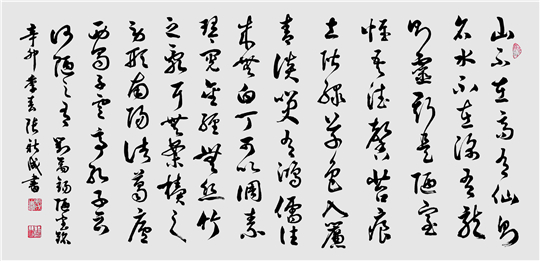 山不在高有仙則
名水不在深有龍
則靈斯是陋室
惟吾德馨苔痕
上階綠草色入簾
青談笑有鴻儒往
來無白丁可以調素
琴閱金經無絲竹
之亂耳無案牘之
勞形南陽諸葛廬
西蜀子雲亭孔子云
何陋之有 劉禹錫陋室銘
辛卯季春張書